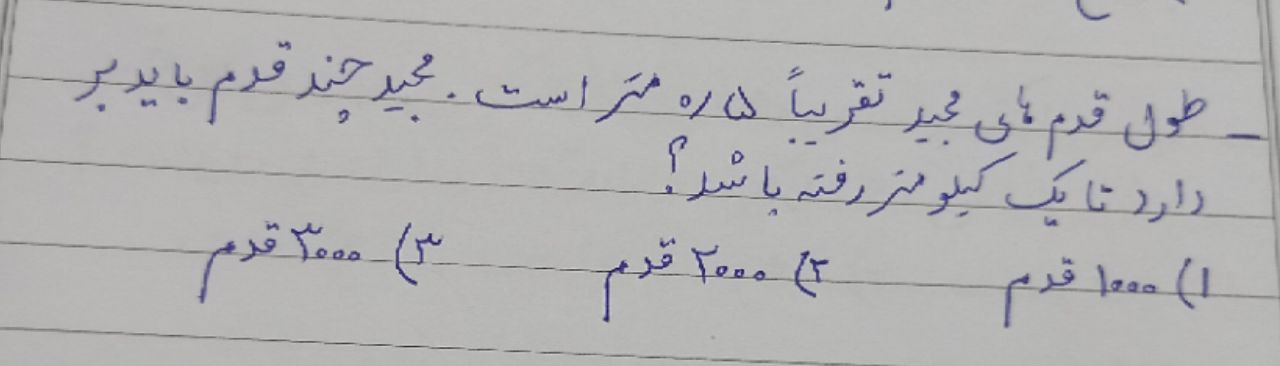 ـ طول قدم های مجید تقریباً ۰/۵ متر است. مجید چند قدم باید بر
دارد تا یک کیلومتر رفته باشد؟
۱) ۱۰۰۰ قدم ۲) ۲۰۰۰ قدم ۳) ۳۰۰۰ قدم